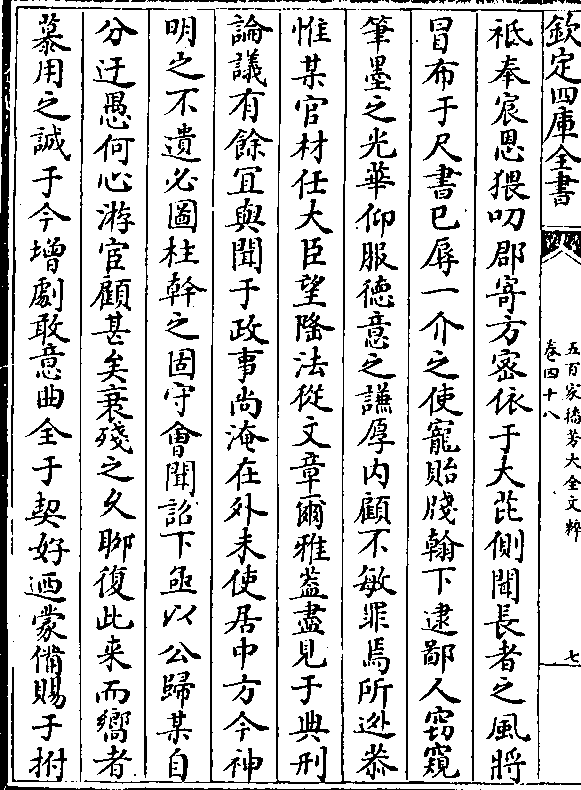 欽定四庫全書
五百家播芳大全文粹
卷四十八
七
祗奉宸恩猥叨郡寄方密依于大芘側聞長者之風將
冒布于尺書已辱一介之使寵貽牋翰下逮鄙人窃窺
筆墨之光華仰服徳意之謙厚内顧不敏罪焉所逃恭
惟某官材任大臣望隆法從文章爾雅葢盡見于典刑
論議有餘冝與聞于政事尚淹在外未使居中方今神
明之不遺必圖柱幹之固守㑹聞詔下亟以公歸某自
分迂愚何心游宦顧甚矣衰殘之久聊復此来而嚮者
慕用之誠于今增劇敢意曲全于契好迺蒙備賜于拊